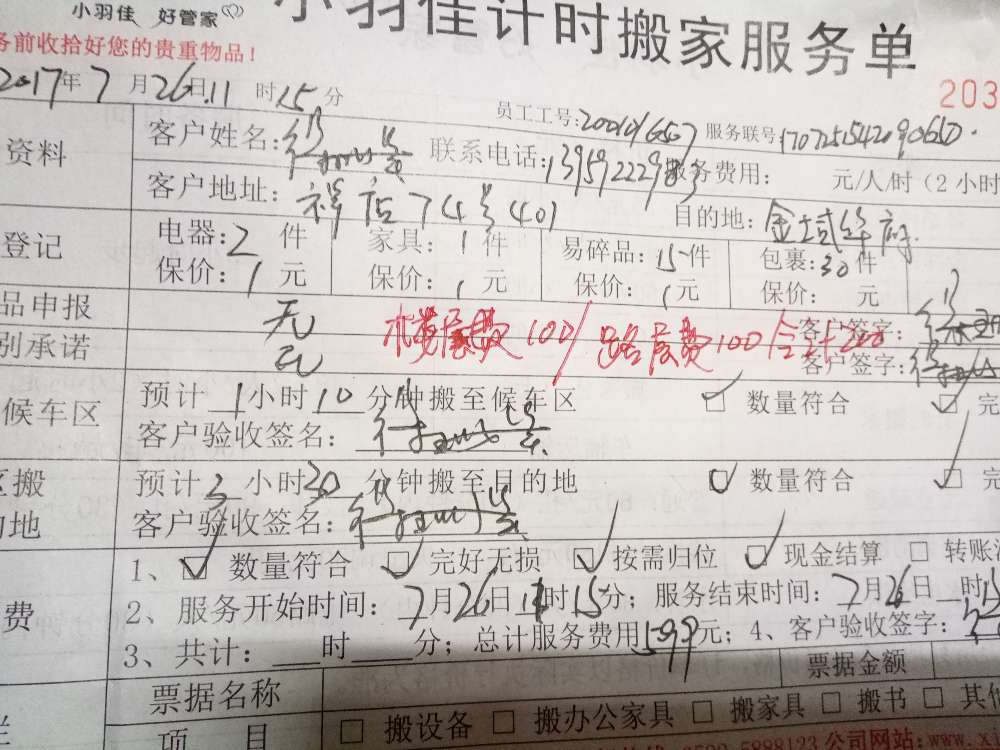 小羽佳 好管家
小羽佳计时搬家服务单
务前收拾好您的贵重物品！
203
2017年7月26日11时15分
员工工号: 服务联号:
资料 客户姓名: 联系电话: 服务费用: 元/人/时（2小时
客户地址: 祥店74号401 目的地: 金域华府
登记 电器:2件 家具:1件 易碎品:15件 包裹:30件
保价:1元 保价:1元 保价:1元 保价: 元
品申报 无 客户签字:
别承诺 无 楼层费100/ 100/合计200 客户签字:
候车区 预计1小时10分钟搬至候车区 ☑ 数量符合 ☑ 完
客户验收签名:
区搬 预计3小时30分钟搬至目的地 ☑ 数量符合 ☑ 完
的地 客户验收签名:
1、☑ 数量符合 ☑ 完好无损 ☑ 按需归位 ☑ 现金结算 □ 转账
费 2、服务开始时间: 7月26日11时15分; 服务结束时间: 7月26日 时15
3、共计: 时 分; 总计服务费用 元; 4、客户验收签字:
票据名称 票据金额
项目 □ 搬设备 □ 搬办公家具 □ 搬家具 □ 搬书 □ 其他
5898123 公司网站:www.xi